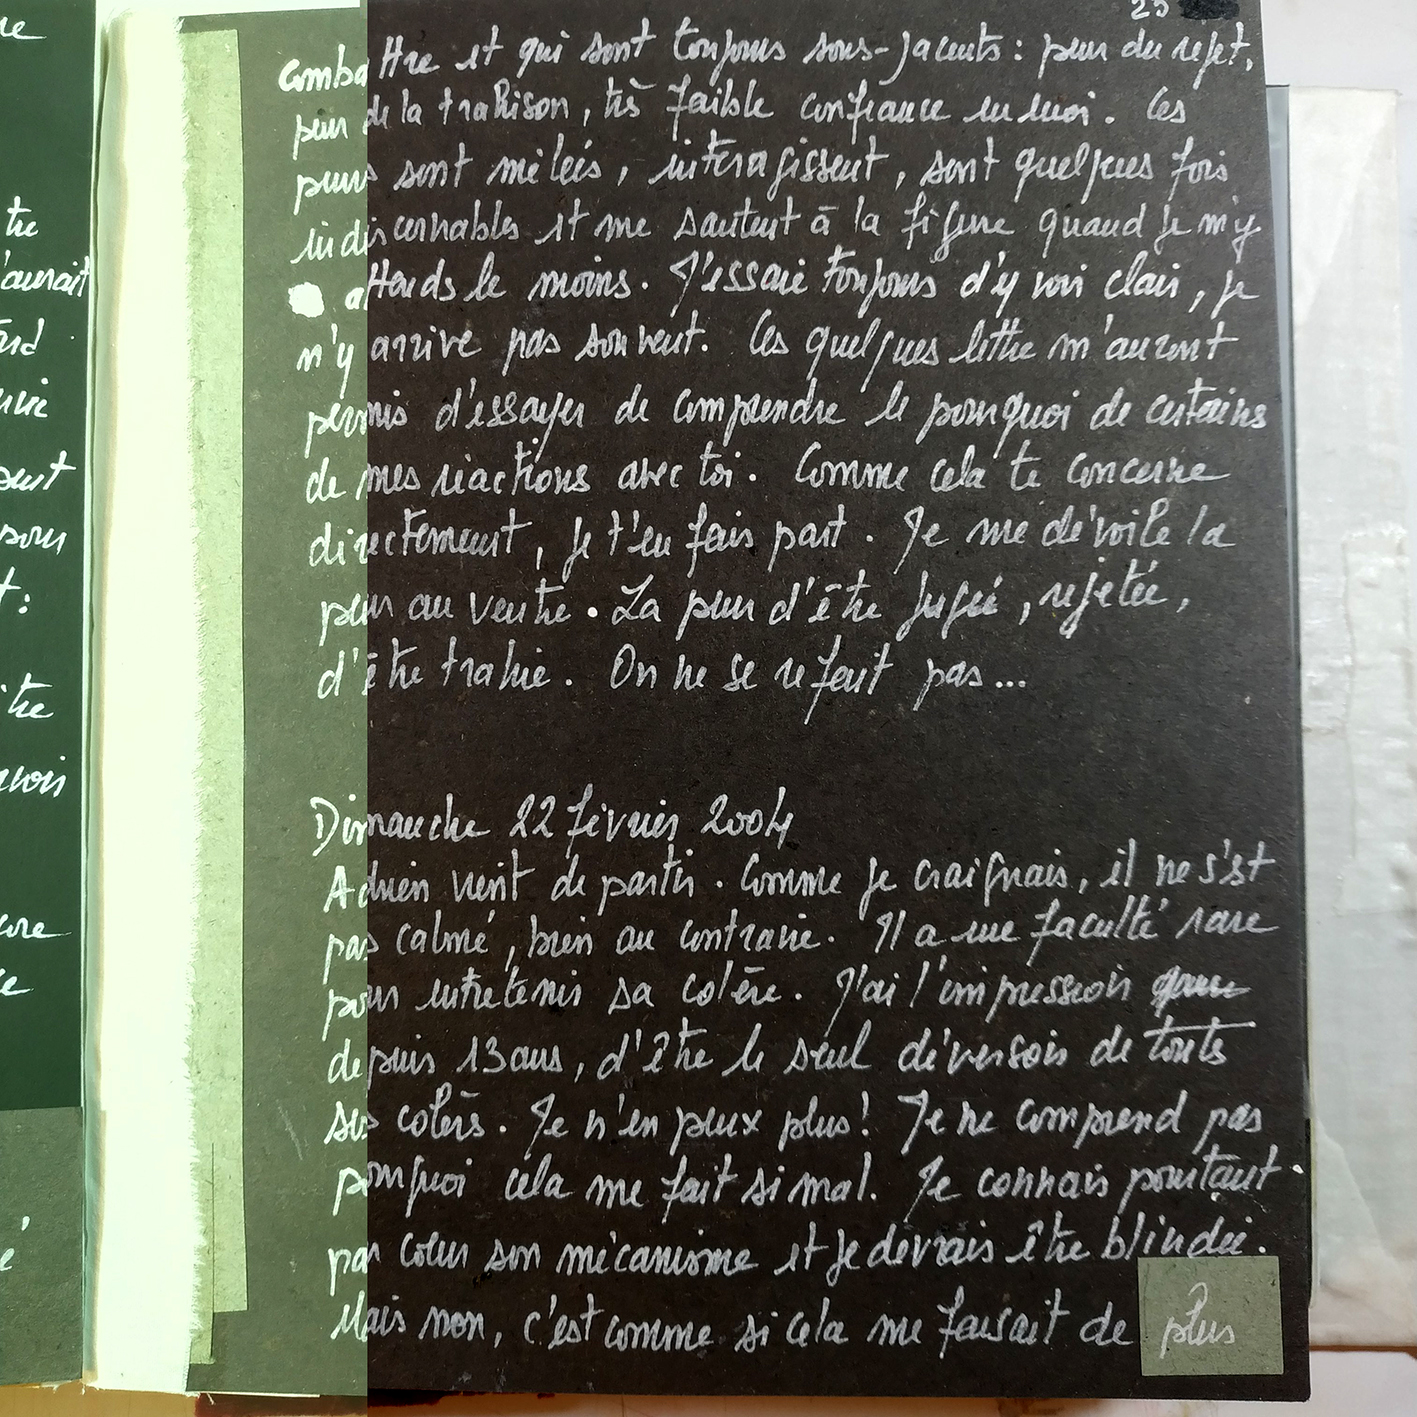 re
tre
'aurait
end
sent
pour
t :
tre
vois
core
ce
é
25
combattre et qui sont toujours sous-jacents : peur du rejet,
peur de la trahison, très faible confiance en moi. Ces
peurs sont mêlées, interagissent, sont quelques fois
indiscernables et me sautent à la figure quand je m'y
attends le moins. J'essaie toujours d'y voir clair, je
n'y arrive pas souvent. Ces quelques lettre m'auront
permis d'essayer de comprendre le pourquoi de certaines
de mes réactions avec toi. Comme cela te concerne
directement, je t'en fais part. Je me dévoile la
peur au ventre. La peur d'être jugée, rejetée,
d'être trahie. On ne se refait pas...
Dimanche 22 février 2004
Adrien vient de partir. Comme je craignais, il ne s'est
pas calmé, bien au contraire. Il a une faculté rare
pour entretenir sa colère. J'ai l'impression
depuis 13 ans, d'être le seul déversoir de toutes
ses colères. Je n'en peux plus! Je ne comprend pas
pourquoi cela me fait si mal. Je connais pourtant
par coeur son mécanisme et je devrais être blindée.
Mais non, c'est comme si cela me faisait de plus